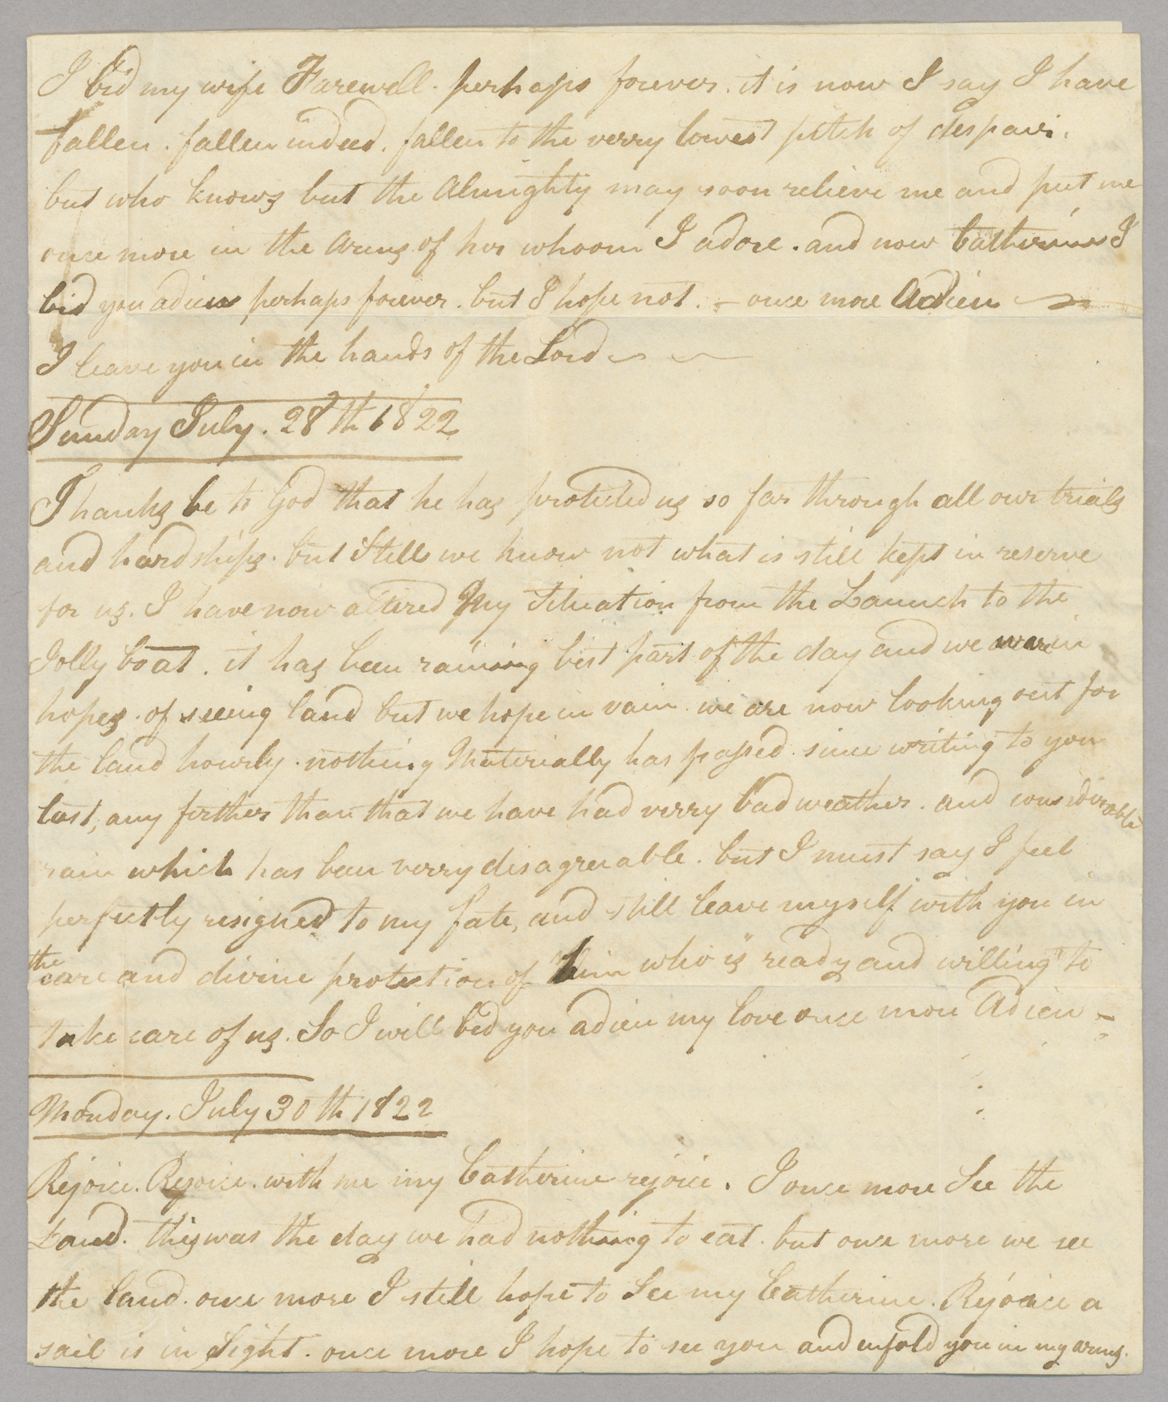 I bid my wife Farewell. perhaps forever. it is now I say I have
fallen. fallen indeed. fallen to the verry lowest pitch of despair.
but who knows but the Almighty may soon relieve me and put me
once more in the arms of her whoom I adore. and now Catherine I
bid you adieu perhaps forever. but I hope not. - once more Adieu
I leave you in the hands of the Lord
Sunday July. 28th 1822
Thanks be to God that he has protected us so far through all our trials
and hardships. but Still we know not what is still kept in reserve
for us. I have now altered My Situation from the Launch to the
Jolly boat. it has been raining best part of the day and we war in
hopes. of seeing land but we hope in vain. we are now looking out for
the land howrly. nothing Materially has passed. since writing to you
last, any further than that we have had verry bad weather. and considerable
rain which has been verry disagreable. but I must say I feel
perfectly resigned to my fate, and still leave myself with you in
the care and divine protection of him who is ready and willing to
take care of us. So I will bid you adieu my love once more Adieu -
Monday. July 30th 1822
Rejoice. Rejoice. with me my Catherine rejoice. I once more See the
Land. this was the day we had nothing to eat. but once more we see
the land. once more I still hope to See my Catherine. Rejoice a
sail is in Sight. once more I hope to see you and enfold you in my arms.